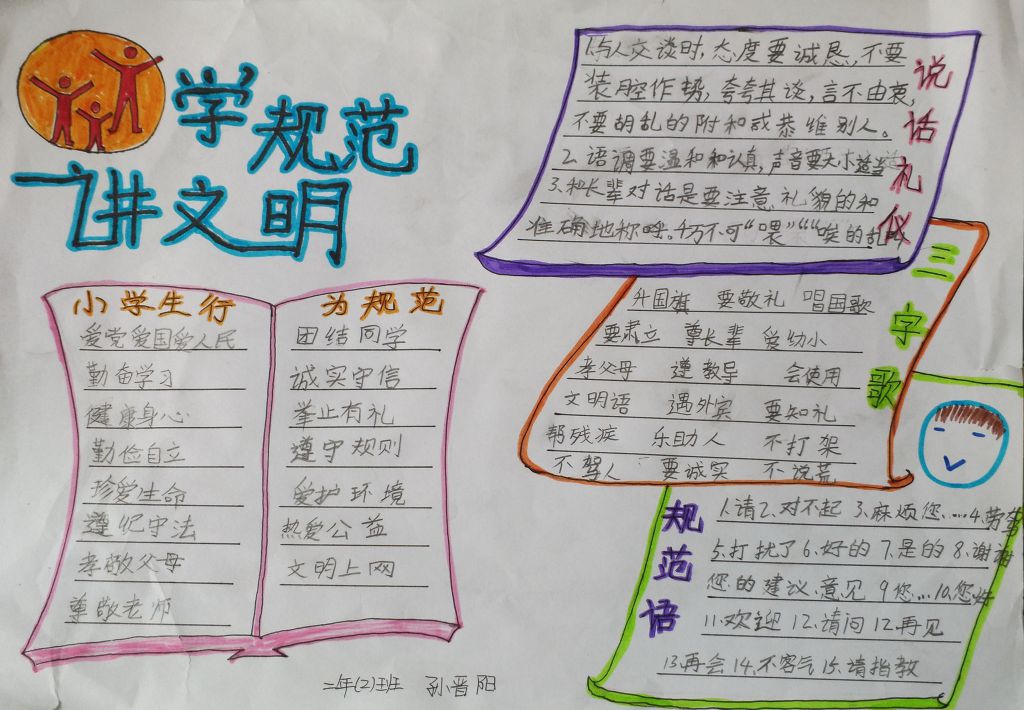 学规范
讲文明
小学生行为规范
爱党爱国爱人民
勤奋学习
健康身心
勤俭自立
珍爱生命
遵纪守法
孝敬父母
尊敬老师
团结同学
诚实守信
举止有礼
遵守规则
爱护环境
热爱公益
文明上网
说话礼仪
1.与人交谈时,态度要诚恳,不要
装腔作势,夸夸其谈,言不由衷,
不要胡乱的附和或恭维别人。
2.语调要温和和认真,声音要大小适当
3.和长辈对话是要注意礼貌的和
准确地称呼。4.万不可“喂”““唉的乱叫
三字歌
升国旗 要敬礼 唱国歌
要肃立 尊长辈 爱幼小
孝父母 遵教导 会使用
文明语 遇外宾 要知礼
帮残疾 乐助人 不打架
不骂人 要诚实 不说荒
规范语
1.请2.对不起 3.麻烦您.....4.劳驾
5.打扰了6.好的 7.是的 8.谢谢
您的建议.意见 9您...10.您好
11.欢迎 12.请问 12.再见
13.再会 14.不客气 15.请指教
二年(2)班 孙晋阳